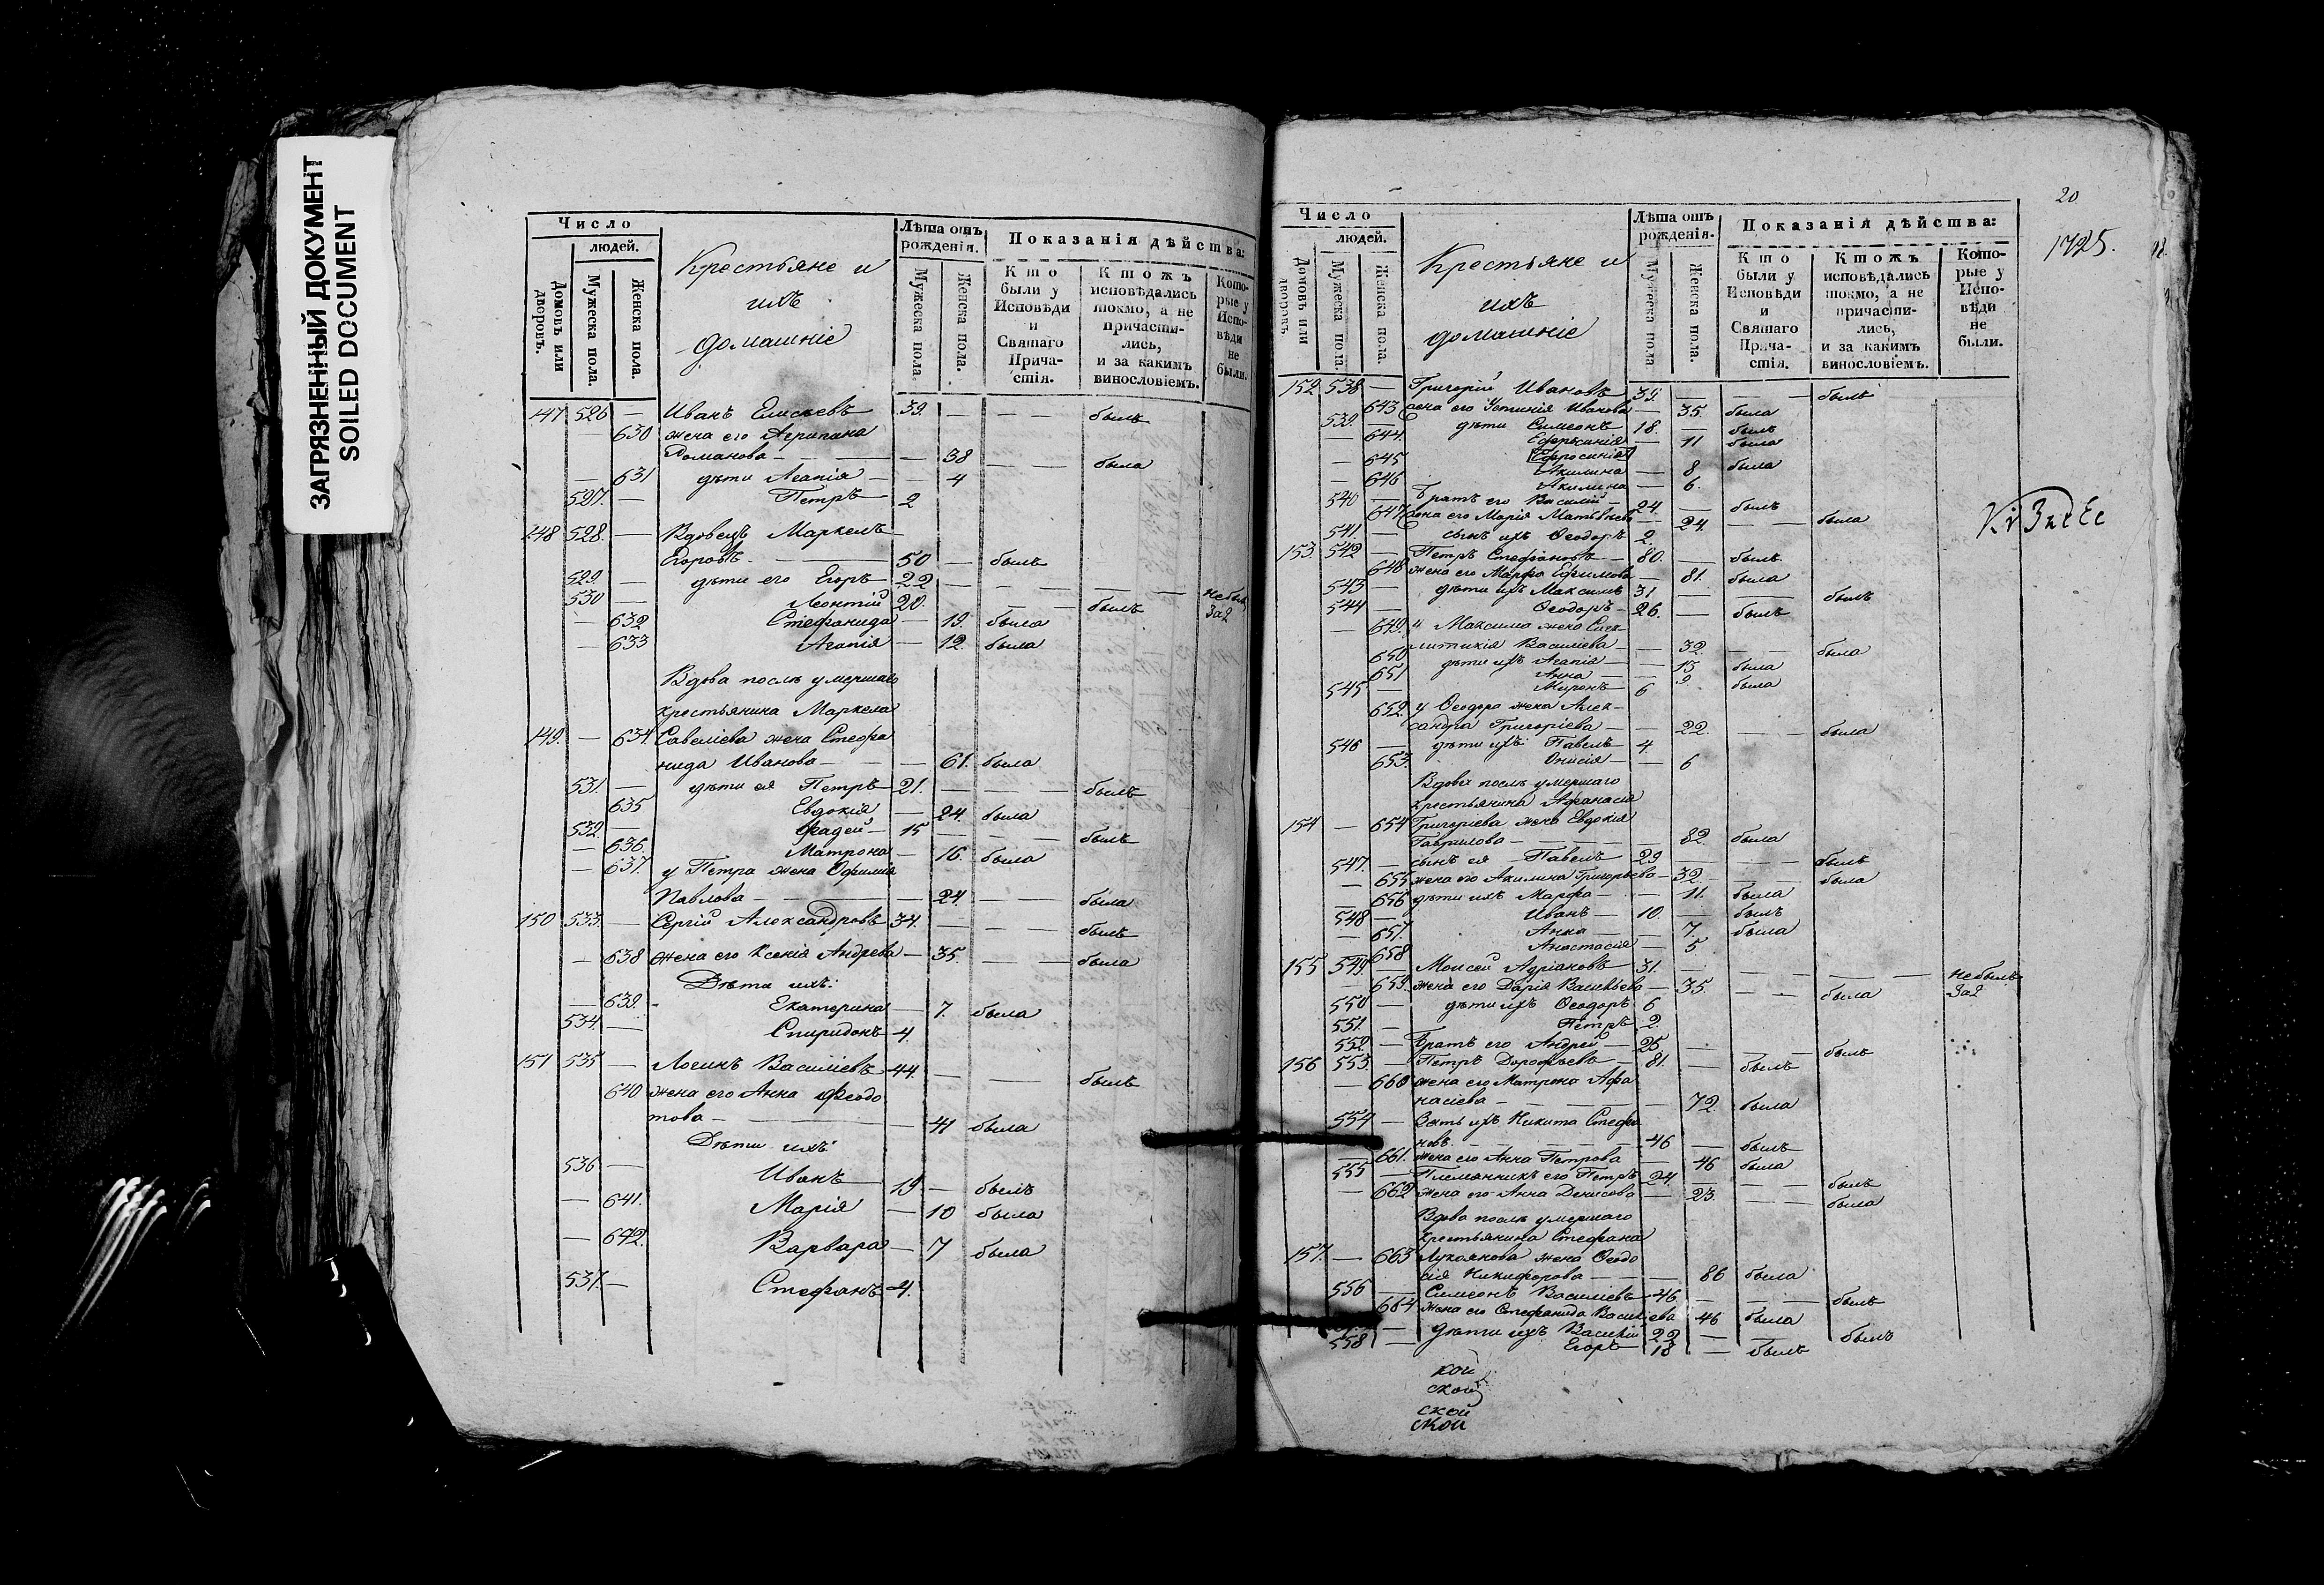 ЗАГРЯЗНЕННЫЙ ДОКУМЕНТ
SOILED DOCUMENT
Число
людей.
Домовъ или дворовъ.
Мужеска пола.
Женска пола.
Крестьяне и
ихъ
домашніе
Лѣта отъ рожденія.
Мужеска пола.
Женска пола.
Показанія дѣйства:
Кто были у Исповѣди и Святаго Причастія.
Ктожъ исповѣдались токмо, а не причастились, и за какимъ винословіемъ.
Которые у Исповѣди не были.
147 526 — Иванъ Елисѣевъ 39. — — — былъ
— 630 жена его Агрипина
Романова — — — 38 — — была
— 631 дѣти Агапія — — 4
527. — Петръ 2
148 528. — Вдовецъ Маркелъ
Егоровъ. — 50 — былъ
529. — дѣти его Егоръ 22 — — — — — небылъ
530 — Леонтій 20. — — былъ За2
— 632 Стефанида — 19. была
— 633 Агапія — 12. была
Вдова послѣ умершаго
крестьянина Маркела
149. — 634. Савеліева жена Стефа
нида Иванова — — — 61. была
531. — дѣти ея Петръ 21. — — — былъ
635 Евдокія — 24. была
532. — Фадей — 15 — — — былъ
— 636. Матрона — 16. была
— 637. у Петра жена Офимія
Павлова — — — 24 — — была
150 533. — Сергій Александровъ 34. — — — былъ
— 638 жена его Ксенія Андреева — 35. — — была
Дѣти ихъ:
— 639. Екатерина — 7. была
534. — Спиридонъ 4.
151 535 — Логинъ Василіевъ 44. — — былъ
640 жена его Анна Феодо
това — — 41 была
Дѣти ихъ
536 — Иванъ — 19. — былъ
— 641. Марія — 10 была
— 642. Варвара — 7 была
537. — Стефанъ 4.
20
1725.
Число
людей.
Домовъ или дворовъ.
Мужеска пола.
Женска пола.
Крестьяне и
ихъ
домашніе
Лѣта отъ рожденія.
Мужеска пола
Женска пола.
Показанія дѣйства:
Кто были у Исповѣди и Святаго Причастія.
Ктожъ исповѣдались токмо, а не причастились, и за какимъ винословіемъ.
Которые у Исповѣди не были.
152 538 — Григорій Ивановъ 39. — — — былъ
643 жена его Устинія Иванова — 35. была
539. — дѣти Симеонъ 18. — былъ
— 644. — 11 была
— 645 Акилина — 8 была
— 646 Акилина — 6.
540 — Братъ его Василій — 24. — былъ
647 жена его Марія Матвѣева — 24. — — была
541. — сынъ ихъ Ѳеодоръ 2.
153. 542 — Петръ Стефановъ — 80. — былъ
648 жена его Марѳа Ефимова — 81. была
543 — дѣти ихъ Максимъ 31 — — былъ
544 — Ѳеодоръ — 26. — былъ
— 649. у Максима жена Сик-
литикія Василіева — — 32. — — была
650 дѣти ихъ Агапія — — 13 была
651 Анна — — 9 была
545 — Миронъ — 6
652. у Ѳеодора жена Алек-
сандра Григоріева — — 22. — — была
546 — дѣти ихъ: Павелъ — 4.
653. Онисія — — 6
Вдова послѣ умершаго
крестьянина Афанасія
154 — 654 Григоріева жена Евдокія
Гаврилова — — — 82. была
547. — сынъ ея Павелъ 29 — — былъ
— 655 жена его Акилина Григорьева — 32 — — была
— 656 дѣти ихъ Марѳа — — 11. была
548 — Иванъ — 10. — былъ
— 657. Анна — — 7. была
658 Анастасія — 5
155 549. — Моисей Адріановъ — 31. — — — — — небылъ
— 659. жена его Дарія Васильева — 35. — — была За2
550 — дѣти ихъ Ѳеодоръ 6
551. — Петръ 2.
552 — Братъ его Андрей — 25 — — — былъ
156 553. — Петръ Дорофѣевъ — 81. — былъ
— 660 жена его Матрона Афа
насіева — — — 72. была
554 — Зять ихъ Никита Стефа
новъ. — — — 46 — былъ
661. жена его Анна Петрова — 46 была
555 — Племянникъ его Петръ 24 — — — былъ
— 662 жена его Анна Денисова — 23. — — была
Вдова послѣ умершаго
крестьянина Стефана
157. — 663 Лукоянова жена Ѳеодо
сія Никифорова — — — 86 была
556 — Симеонъ Василіевъ 46. — — — былъ
664 жена его Стефанида Василіева 46 была
— дѣти ихъ Василій 22 — — былъ
558 — Егоръ — 18 — былъ
кой
ской
ской
ской